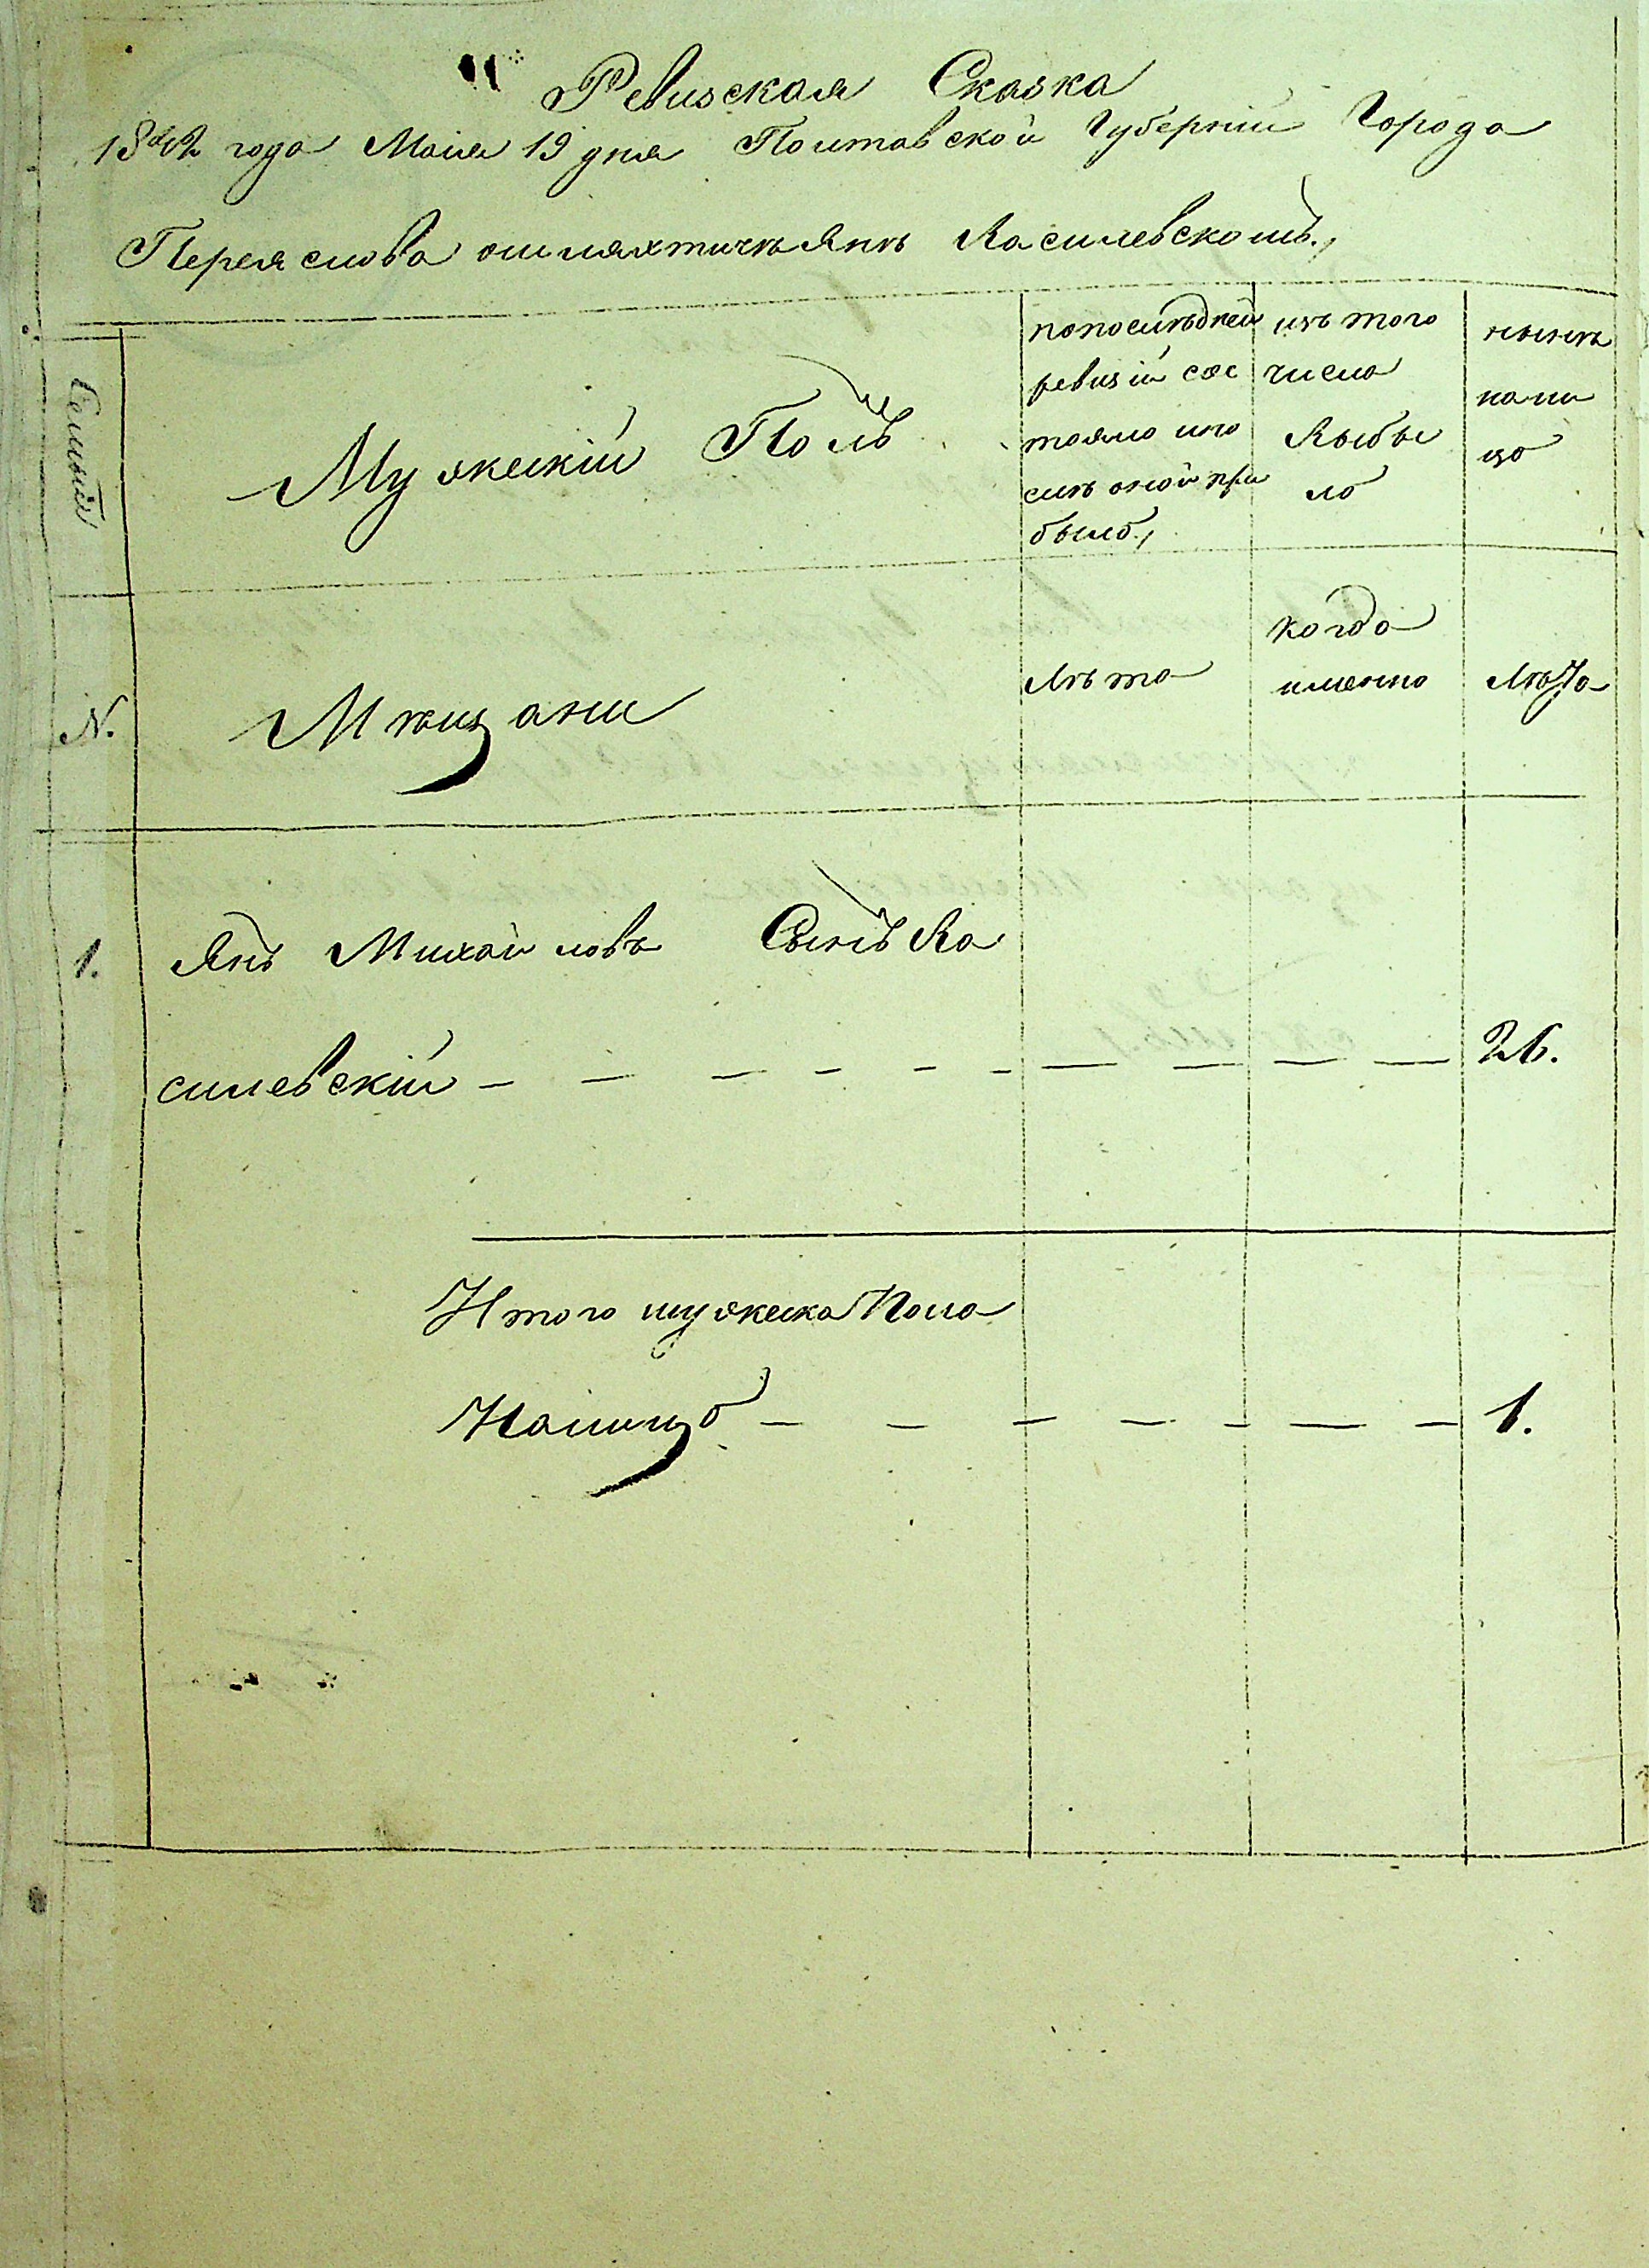 Ревизская Сказка
1842 года Маия 19 дня Полтавской Губерніи Города
Переяслова ошляхтичѣ Янѣ Василевскомъ.,
Семьи
Мужескій Полъ
попослѣдней
ревизіи сос
тояло ипо
слѣ оной при
было.,
изъ того
числа
выбы
ло
нынѣ
нали
цо
N.
Мѣщани
лѣта
когда
именно
лѣта
1. Янъ Михайловъ Сынъ Ва
силевскій — — — — — — — — — 26.
Итого мужеска Пола
Налицо — — — — — — — 1.